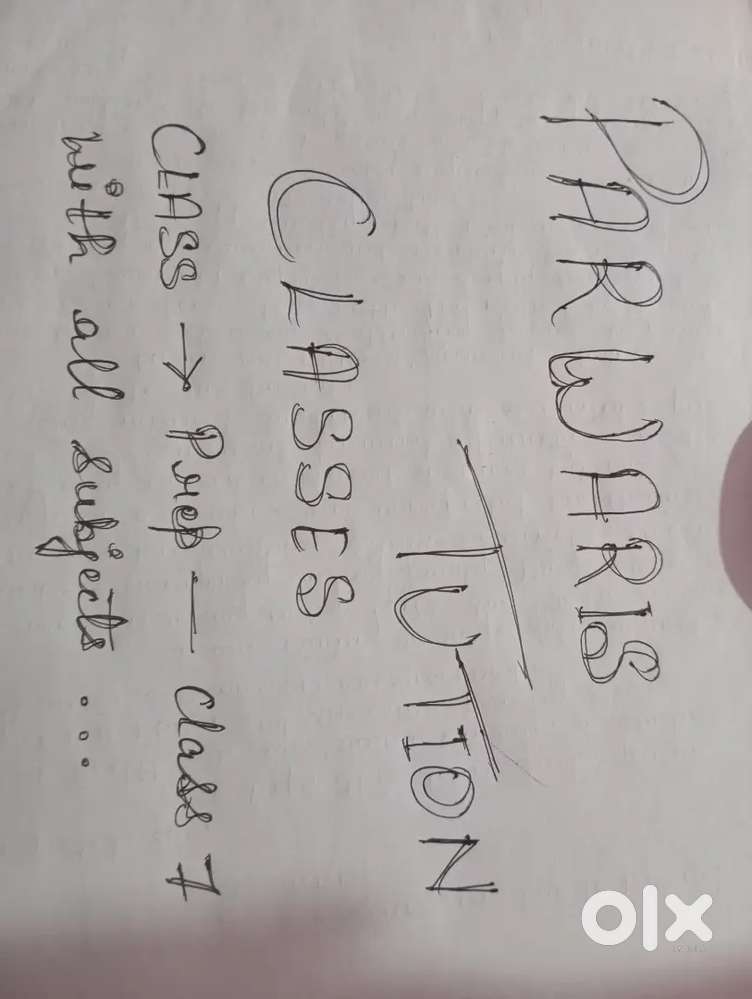 PARWARIS
TUTION
CLASSES
CLASS → Prep — class 7
with all subjects...
olx